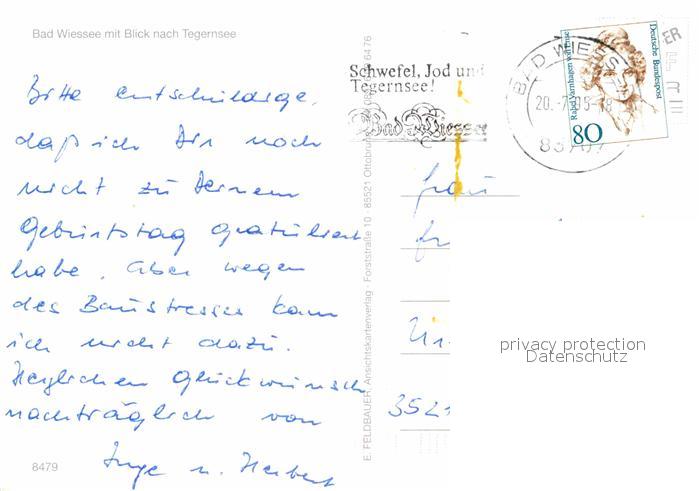 Bad Wiessee mit Blick nach Tegernsee
Bitte entschuldige,
daß ich Dir noch
nicht zu Deinem
Geburtstag gratuliert
habe. Aber wegen
des Baustresses kam
ich nicht dazu.
Herzlichen Glückwunsch
nachträglich von
Inge u. Herbert
8479
E. FELDBAUER, Ansichtskartenverlag · Forststraße 10 · 85521 Ottobrunn
Schwefel, Jod und
Tegernsee!
Bad Wiessee
BAD WIESS
20.-7.
Rahel Varnhagen von Ense
Deutsche Bundespost
80
Frau
352
privacy protection
Datenschutz